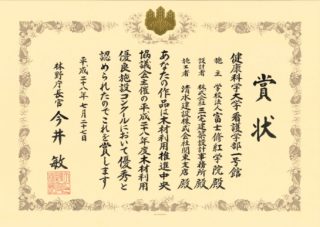 賞状
健康科学大学看護学部一号館
施主 学校法人富士修紅学院殿
設計者 株式会社三宅建築設計事務所殿
施工者 清水建設株式会社関東支店殿
あなたの作品は木材利用推進中央
協議会主催の平成二十八年度木材利用
優良施設コンクールにおいて優秀と
認められたのでこれを賞します
平成二十八年十月二十七日
林野庁長官 今井敏